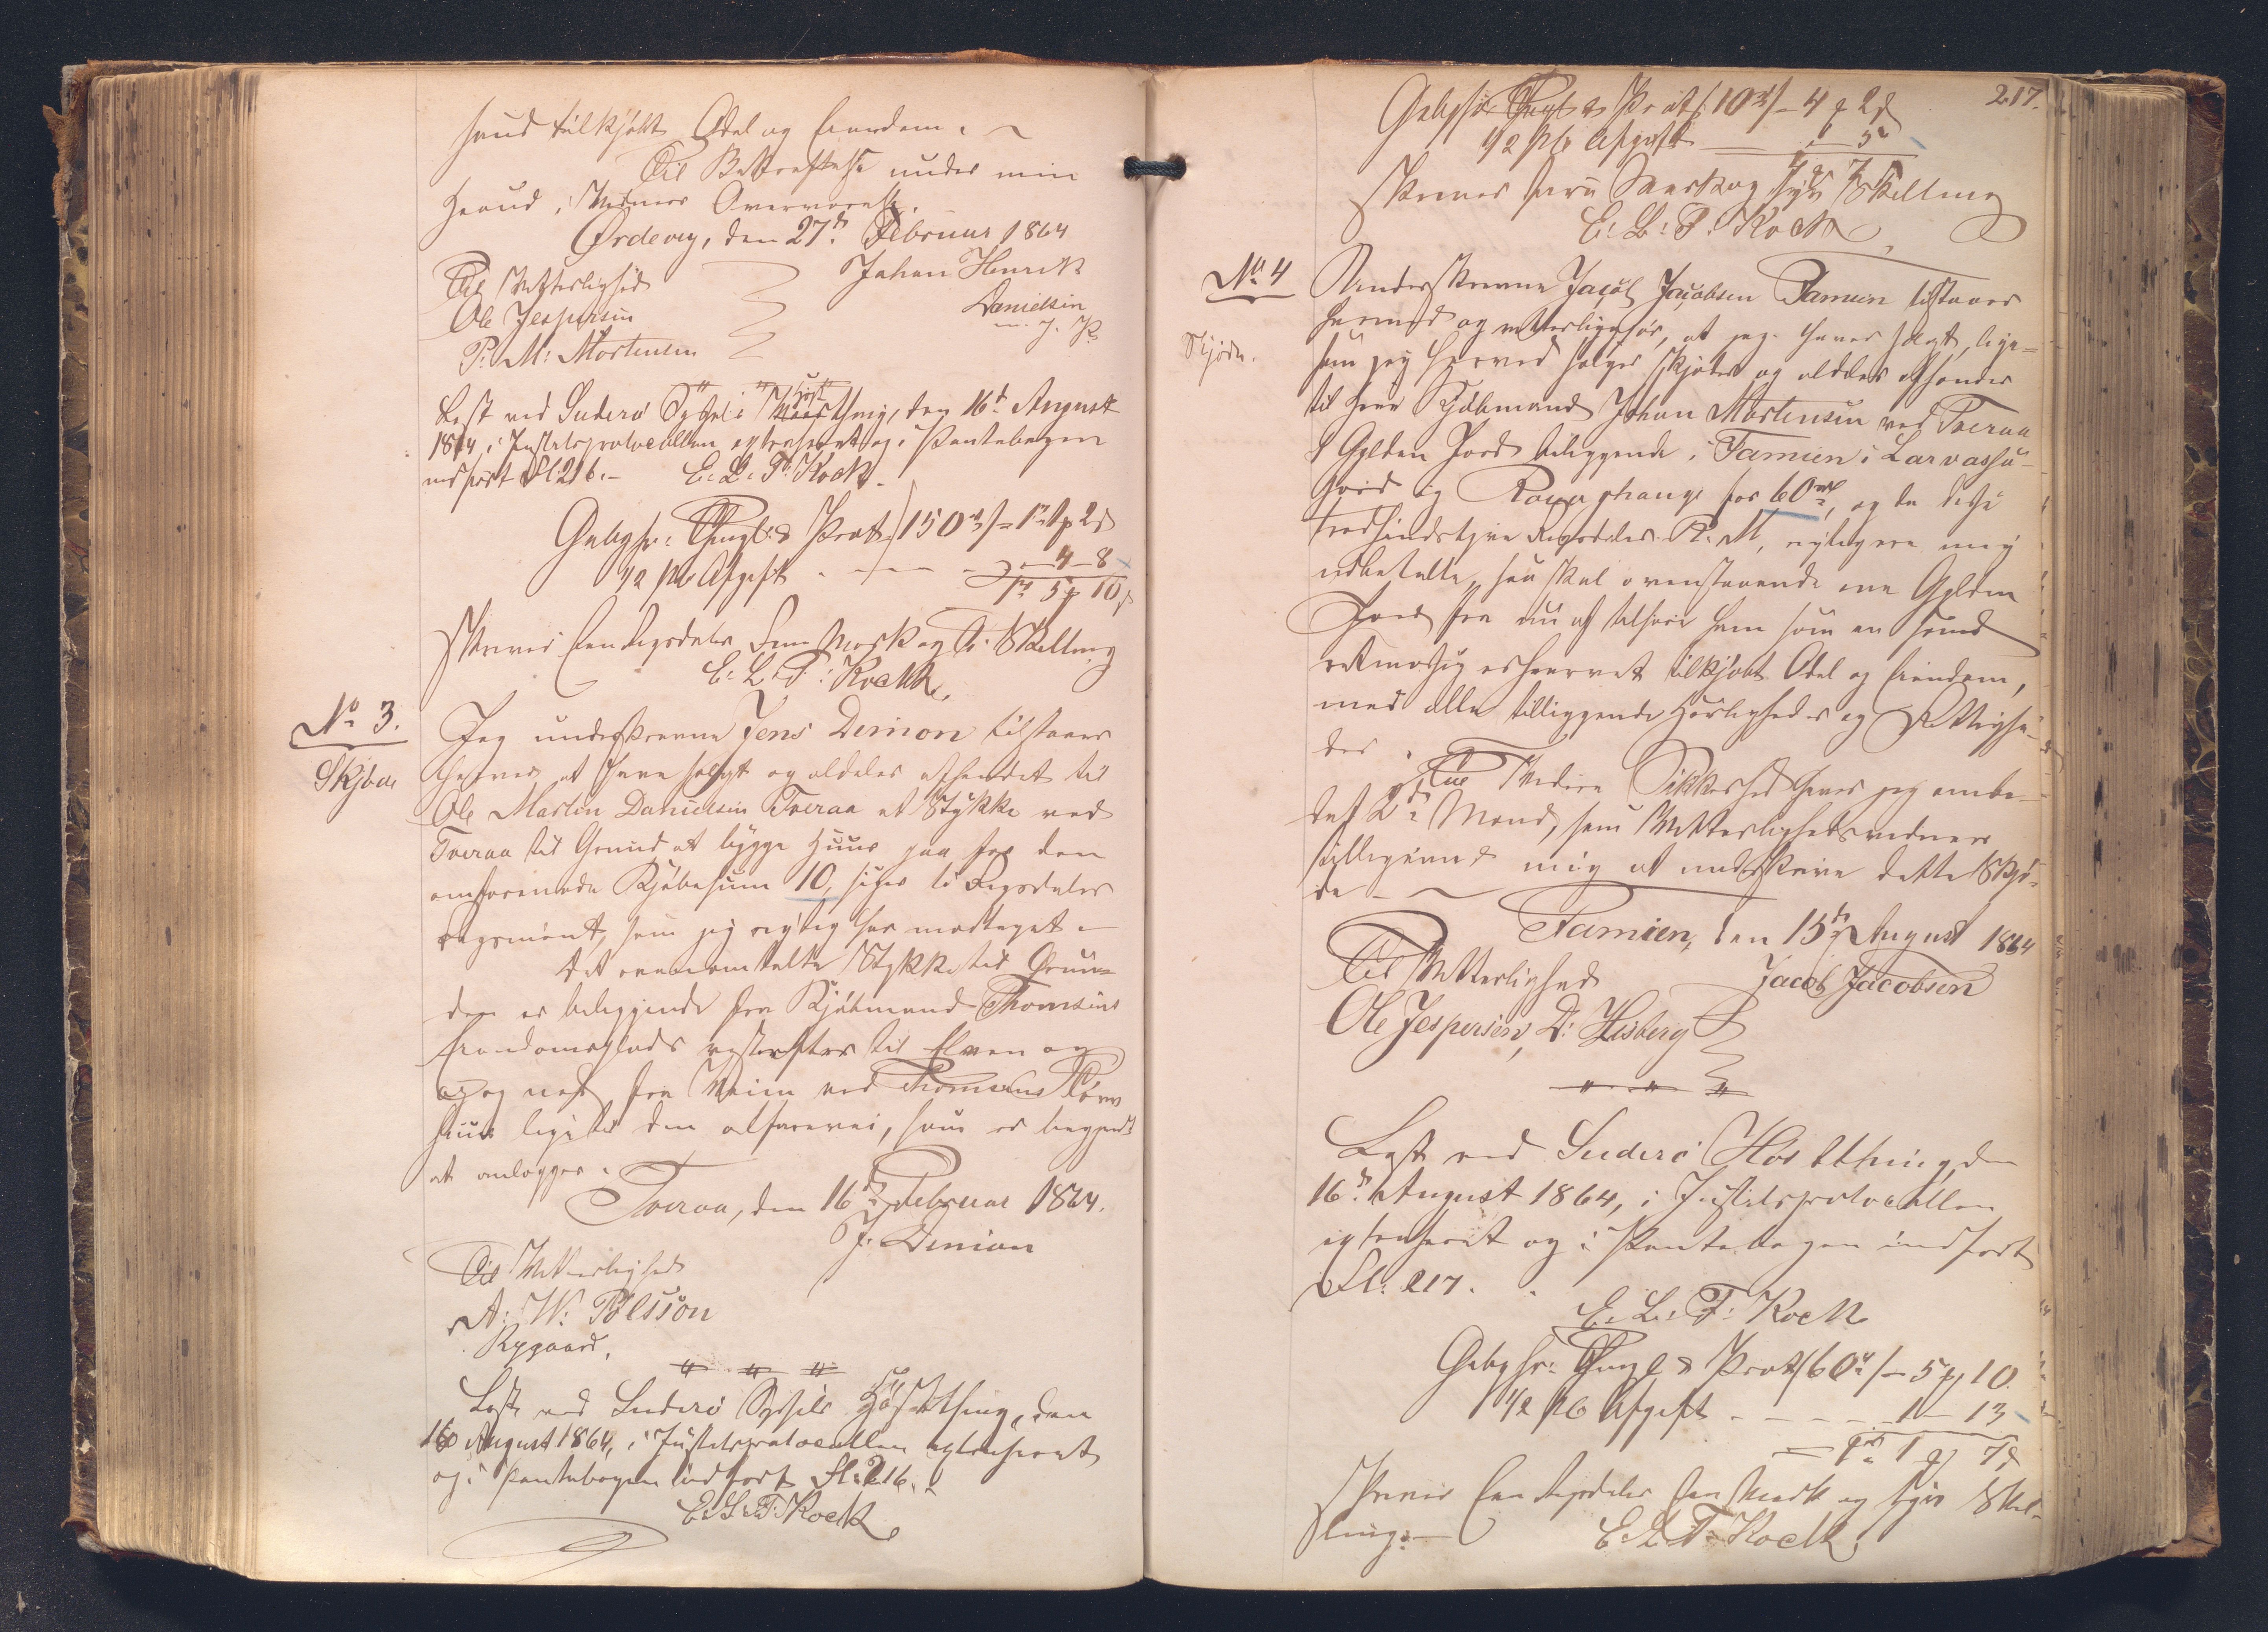 hans tilkjøbt Odel og Eiendom.
Til Bekræftelse under min
Haand, i Vidners Overværelse.
Ørdevig, den 27de Februar 1864
Til Vitterlighed Johan Henrik
Ole Jespersen Danielsen
P: M: Mortensen m. f. P.
Læst ved Suderø Syssels Høstthing, den 16de August
1864, i Justitsprotocollen extraheret og i Pantebogen
indført Fl 216.- E: L: T: Kock.
Gebyhr: Thingl. & Prot. 150 rd /= 1 rd 1 mk 2 s
1/2 pC Afgift - - - " - 4 - 8
1 rd 5 mk 10 s
skriver Een Rigsdaler Fem Mark og Ti Skilling
E: L: T: Kock.
No 3.
Skjøde
Jeg underskrevne Jens Dimon tilstaaer
herved at have solgt og aldeles afhændet til
Ole Martin Danielsen Tveraa et Stykke ved
Tveraa til Grund at bygge Huus paa for den
omforenede Kjøbesum 10, siger ti Rigsdaler
Rigsmønt, som jeg rigtig har modtaget.
Det ovenomtalte Stykke til Grun-
den er beliggende fra Kjøbmand Thomsens
Eiendomsplads vesterefter til Elven og
og ned fra Veien ved Thomsens Tørv
huus lige til den alfarevei, som er begyndt
at anlægges.
Tveraa, den 16de Februar 1864.
J: Dimon
Til Vitterlighed
A: W: Polsson
Rygaard,
Læst ved Suderø Syssels Høstthing, den
16 August 1864, i Justitsprotocollen extraheret
og i Pantebogen indført Fl: 216.
E: L: T: Kock.
217.
Gebyhr Thingl & Prot /: 10 rd /- 4 mk 2 s
1/2 pC Afgift - " 5
4 mk 7 s
skriver fire Mark og syv Skilling
E: L: T: Kock
No 4
Skjøde.
Underskrevne Jacob Jacobsen Famien tilstaaer
hermed og vitterliggjør, at jeg haver solgt, lige=
som jeg herved sælger, skjøder og aldeles afhænder
til Herr Kjøbmand Johan Mortensen ved Tveraa
1 Gylden Jord beliggende i Famien i Larvashu-
for 60 rd, og da disse
tredsindstyve Rigsdaler R: M, ere mig
udbetalte, saa skal ovenstaaende een Gylden
Jord fra nu af tilhøre ham som en sand
retmæssig erhvervet tilkjøbt Odel og Eiendom,
med alle tilliggende Herligheder og Rettighe-
der.
Til Videre Sikkerhed haver jeg ombe-
det 2de Mænd, som Vitterlighedsvidner
tilligemed mig at underskrive dette Skjø-
de -
Famien, den 15de August 1864
Til Vitterlighed Jacob Jacobsen
Ole Jespersen, D: Hisberg
Læst ved Suderø Høstthing, den
16de August 1864, i Justitsprotocollen
extraheret og i Pantebogen indført
Fl: 217.
E: L: T: Kock
Gebyhr: Thingl & Prot /60 rd /- 5 mk 10
1/2 pC Afgift - - - - - 1 - 13
= 1 rd 1 mk 7 s
skriver Een Rigsdaler Een Mark og syv Skil-
ling.- E: L: T: Kock.